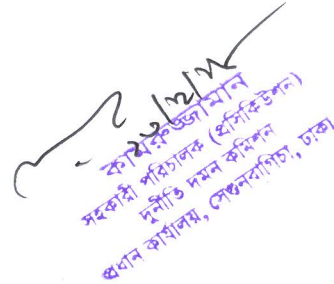 কামরুজ্জামান
সহকারী পরিচালক (প্রসিকিউশন)
দুর্নীতি দমন কমিশন
প্রধান কার্যালয়, সেগুনবাগিচা, ঢাকা